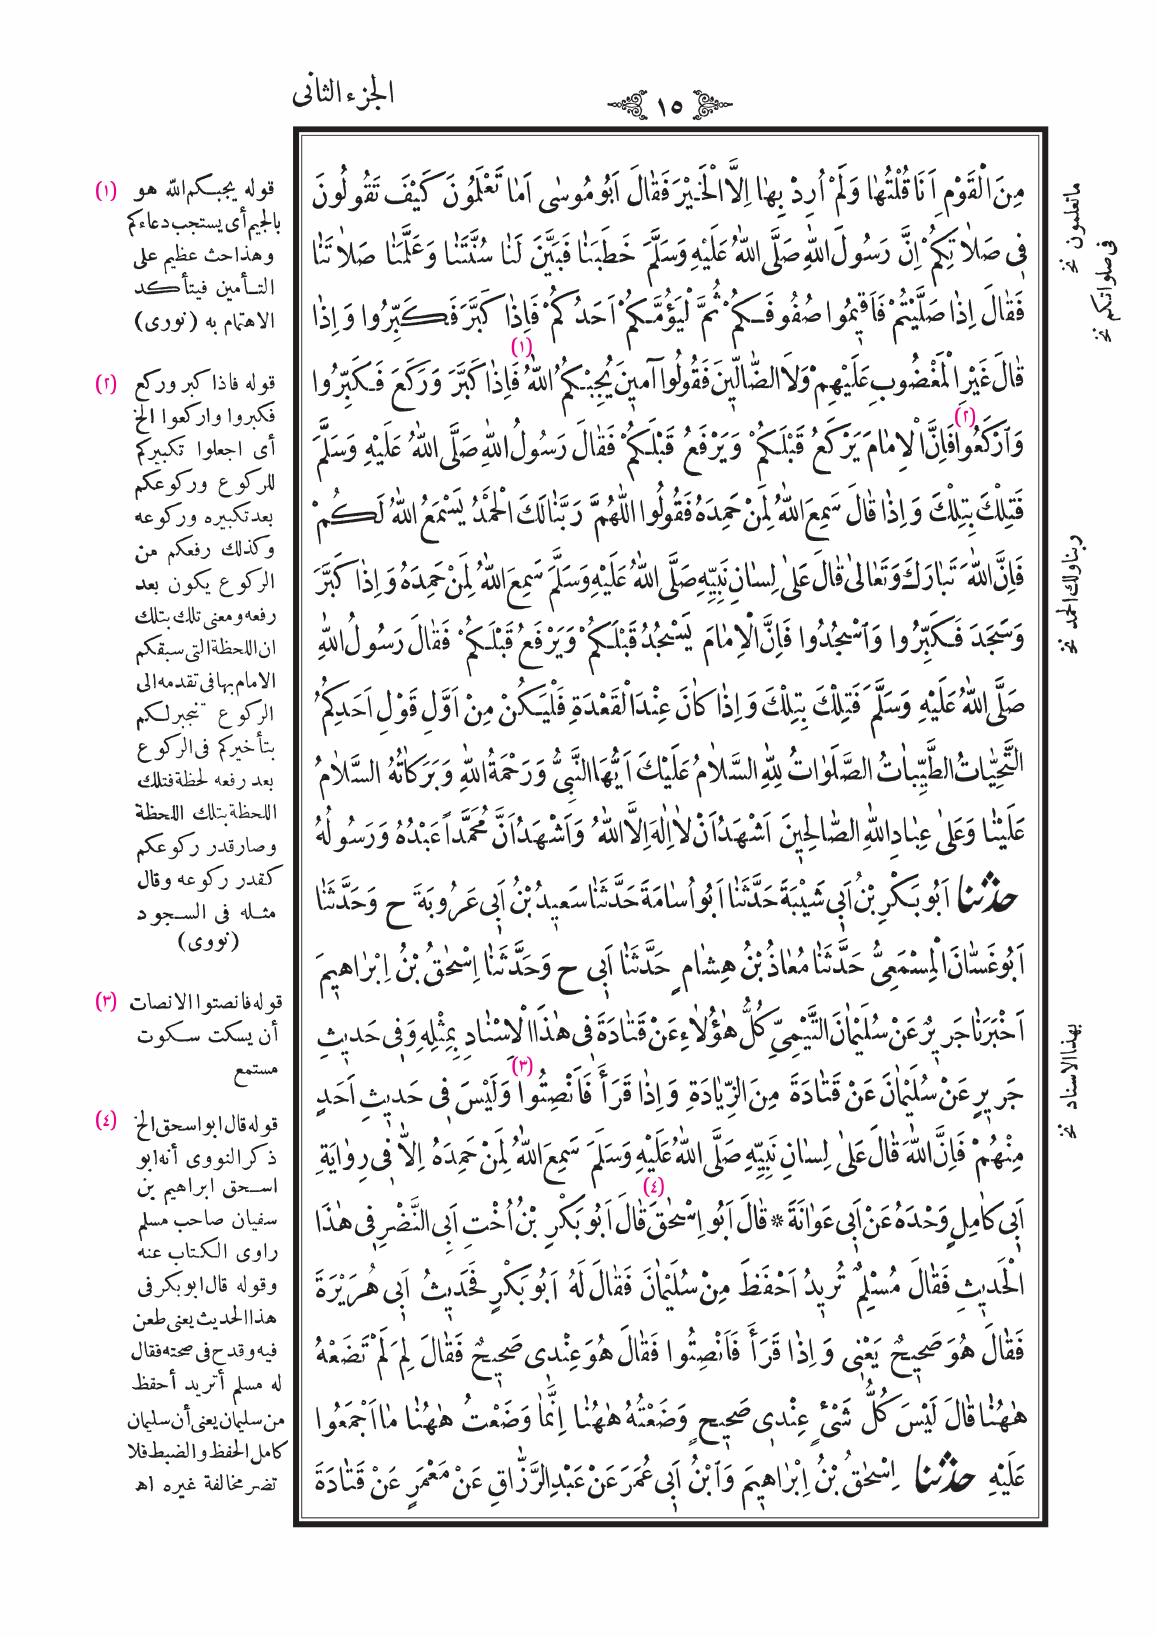 الجزء الثانى
١٥
مِنَ الْقَوْمِ اَنَا قُلْتُهَا وَلَمْ اُرِدْ بِهَا اِلَّا الْخَيْرَ فَقَالَ اَبُو مُوسٰى اَمَا تَعْلَمُونَ كَيْفَ تَقُولُونَ
فِى صَلَاتِكُمْ اِنَّ رَسُولَ اللّٰهِ صَلَّى اللّٰهُ عَلَيْهِ وَسَلَّمَ خَطَبَنَا فَبَيَّنَ لَنَا سُنَّتَنَا وَعَلَّمَنَا صَلَاتَنَا
فَقَالَ اِذَا صَلَّيْتُمْ فَاَقِيمُوا صُفُوفَكُمْ ثُمَّ لْيَؤُمَّكُمْ اَحَدُكُمْ فَاِذَا كَبَّرَ فَكَبِّرُوا وَاِذَا
قَالَ غَيْرِ الْمَغْضُوبِ عَلَيْهِمْ وَلَا الضَّالِّينَ فَقُولُوا آمِينَ يُجِبْكُمُ اللّٰهُ (١) فَاِذَا كَبَّرَ وَرَكَعَ فَكَبِّرُوا
وَارْكَعُوا (٢) فَاِنَّ الْاِمَامَ يَرْكَعُ قَبْلَكُمْ وَيَرْفَعُ قَبْلَكُمْ فَقَالَ رَسُولُ اللّٰهِ صَلَّى اللّٰهُ عَلَيْهِ وَسَلَّمَ
فَتِلْكَ بِتِلْكَ وَاِذَا قَالَ سَمِعَ اللّٰهُ لِمَنْ حَمِدَهُ فَقُولُوا اللّٰهُمَّ رَبَّنَا لَكَ الْحَمْدُ يَسْمَعُ اللّٰهُ لَكُمْ
فَاِنَّ اللّٰهَ تَبَارَكَ وَتَعَالٰى قَالَ عَلٰى لِسَانِ نَبِيِّهِ صَلَّى اللّٰهُ عَلَيْهِ وَسَلَّمَ سَمِعَ اللّٰهُ لِمَنْ حَمِدَهُ وَاِذَا كَبَّرَ
وَسَجَدَ فَكَبِّرُوا وَاسْجُدُوا فَاِنَّ الْاِمَامَ يَسْجُدُ قَبْلَكُمْ وَيَرْفَعُ قَبْلَكُمْ فَقَالَ رَسُولُ اللّٰهِ
صَلَّى اللّٰهُ عَلَيْهِ وَسَلَّمَ فَتِلْكَ بِتِلْكَ وَاِذَا كَانَ عِنْدَ الْقَعْدَةِ فَلْيَكُنْ مِنْ اَوَّلِ قَوْلِ اَحَدِكُمُ
التَّحِيَّاتُ الطَّيِّبَاتُ الصَّلَوَاتُ لِلّٰهِ السَّلَامُ عَلَيْكَ اَيُّهَا النَّبِىُّ وَرَحْمَةُ اللّٰهِ وَبَرَكَاتُهُ السَّلَامُ
عَلَيْنَا وَعَلٰى عِبَادِ اللّٰهِ الصَّالِحِينَ اَشْهَدُ اَنْ لَا اِلٰهَ اِلَّا اللّٰهُ وَاَشْهَدُ اَنَّ مُحَمَّداً عَبْدُهُ وَرَسُولُهُ
حدثنا اَبُو بَكْرِ بْنُ اَبِى شَيْبَةَ حَدَّثَنَا اَبُو اُسَامَةَ حَدَّثَنَا سَعِيدُ بْنُ اَبِى عَرُوبَةَ ح وَحَدَّثَنَا
اَبُو غَسَّانَ الْمِسْمَعِىُّ حَدَّثَنَا مُعَاذُ بْنُ هِشَامٍ حَدَّثَنَا اَبِى ح وَحَدَّثَنَا اِسْحٰقُ بْنُ اِبْرَاهِيمَ
اَخْبَرَنَا جَرِيرٌ عَنْ سُلَيْمَانَ التَّيْمِىِّ كُلُّ هٰؤُلَاءِ عَنْ قَتَادَةَ فِى هٰذَا الْاِسْنَادِ بِمِثْلِهِ وَفِى حَدِيثِ
جَرِيرٍ عَنْ سُلَيْمَانَ عَنْ قَتَادَةَ مِنَ الزِّيَادَةِ وَاِذَا قَرَأَ فَاَنْصِتُوا (٣) وَلَيْسَ فِى حَدِيثِ اَحَدٍ
مِنْهُمْ فَاِنَّ اللّٰهَ قَالَ عَلٰى لِسَانِ نَبِيِّهِ صَلَّى اللّٰهُ عَلَيْهِ وَسَلَّمَ سَمِعَ اللّٰهُ لِمَنْ حَمِدَهُ اِلَّا فِى رِوَايَةِ
اَبِى كَامِلٍ وَحْدَهُ عَنْ اَبِى عَوَانَةَ * قَالَ اَبُو اِسْحٰقَ (٤) قَالَ اَبُو بَكْرِ بْنُ اُخْتِ اَبِى النَّضْرِ فِى هٰذَا
الْحَدِيثِ فَقَالَ مُسْلِمٌ تُرِيدُ اَحْفَظَ مِنْ سُلَيْمَانَ فَقَالَ لَهُ اَبُو بَكْرٍ فَحَدِيثُ اَبِى هُرَيْرَةَ
فَقَالَ هُوَ صَحِيحٌ يَعْنِى وَاِذَا قَرَأَ فَاَنْصِتُوا فَقَالَ هُوَ عِنْدِى صَحِيحٌ فَقَالَ لِمَ لَمْ تَضَعْهُ
هٰهُنَا قَالَ لَيْسَ كُلُّ شَىْءٍ عِنْدِى صَحِيحٍ وَضَعْتُهُ هٰهُنَا اِنَّمَا وَضَعْتُ هٰهُنَا مَا اَجْمَعُوا
عَلَيْهِ حدثنا اِسْحٰقُ بْنُ اِبْرَاهِيمَ وَابْنُ اَبِى عُمَرَ عَنْ عَبْدِ الرَّزَّاقِ عَنْ مَعْمَرٍ عَنْ قَتَادَةَ
ما تعلمون نخ
فى صلواتكم نخ
ربنا ولك الحمد نخ
بهذا الاسناد نخ
(١) قوله يجبكم الله هو
بالجيم أى يستجب دعاءكم
وهذا حث عظيم على
التأمين فيتأكد
الاهتمام به (نووى)
(٢) قوله فاذا كبر وركع
فكبروا واركعوا الخ
أى اجعلوا تكبيركم
للركوع وركوعكم
بعد تكبيره وركوعه
وكذلك رفعكم من
الركوع يكون بعد
رفعه ومعنى تلك بتلك
ان اللحظة التى سبقكم
الامام بها فى تقدمه الى
الركوع تنجبر لكم
بتأخيركم فى الركوع
بعد رفعه لحظة فتلك
اللحظة بتلك اللحظة
وصار قدر ركوعكم
كقدر ركوعه وقال
مثله فى السجود
(نووى)
(٣) قوله فانصتوا الانصات
أن يسكت سكوت
مستمع
(٤) قوله قال ابو اسحق الخ
ذكر النووى أنه ابو
اسحق ابراهيم بن
سفيان صاحب مسلم
راوى الكتاب عنه
وقوله قال ابو بكر فى
هذا الحديث يعنى طعن
فيه وقدح فى صحته فقال
له مسلم أتريد أحفظ
من سليمان يعنى أن سليمان
كامل الحفظ والضبط فلا
تضر مخالفة غيره اه